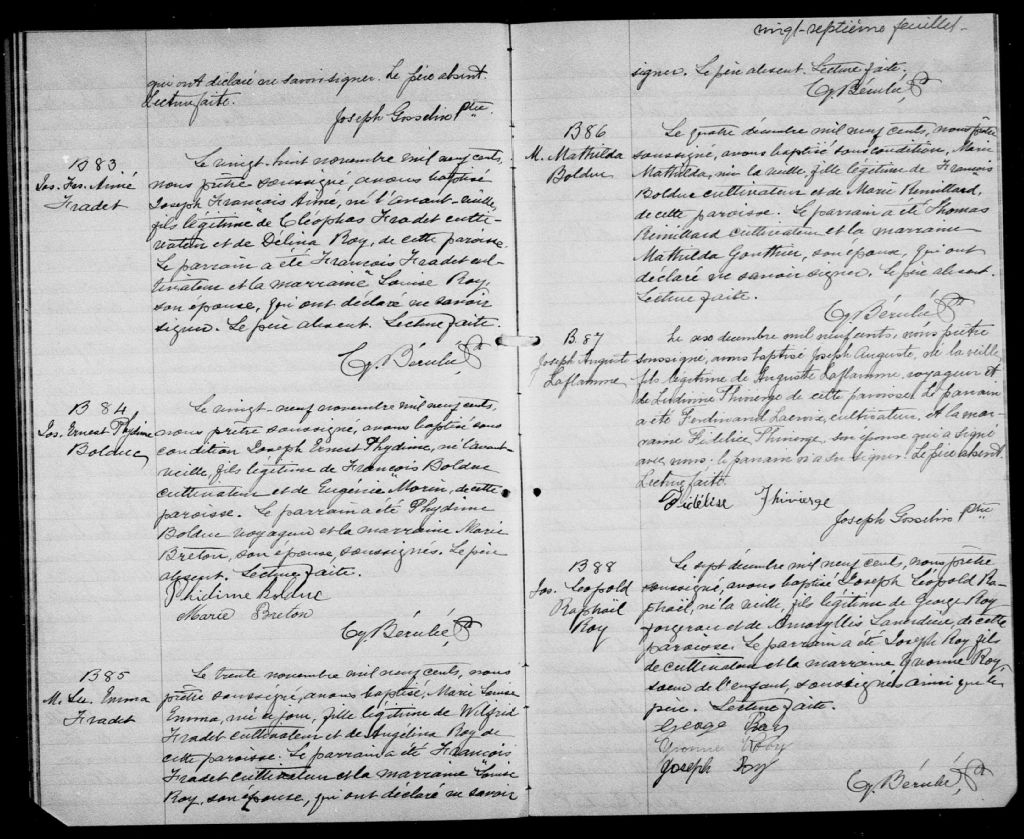 qui ont déclaré ne savoir signer. Le père absent.
Lecture faite.
Joseph Gosselin Ptre
B 83
Jos. Frs. Aimé
Fradet
Le vingt-huit novembre mil neuf cents,
nous prêtre soussigné, avons baptisé
Joseph François Aimé, né l'avant-veille,
fils légitime de Cléophas Fradet culti-
vateur et de Délina Roy, de cette paroisse.
Le parrain a été François Fradet cul-
tivateur et la marraine Louise Roy,
son épouse, qui ont déclaré ne savoir
signer. Le père absent. Lecture faite.
Bérubé, Ptre
B 84
Jos. Ernest Phydime
Bolduc
Le vingt-neuf novembre mil neuf cents,
nous prêtre soussigné, avons baptisé sous
condition Joseph Ernest Phydime, né l'avant-
veille, fils légitime de François Bolduc
cultivateur et de Eugénie Morin, de cette
paroisse. Le parrain a été Phydime
Bolduc voyageur et la marraine Marie
Breton, son épouse, soussignés. Le père
absent. Lecture faite.
Phidime Bolduc
Marie Breton
Bérubé, Ptre
B 85
M. Lse. Emma
Fradet
Le trente novembre mil neuf cents, nous
prêtre soussigné, avons baptisé, Marie Louise
Emma, née ce jour, fille légitime de Wilfrid
Fradet cultivateur et de Angélina Roy de
cette paroisse. Le parrain a été François
Fradet cultivateur et la marraine Louise
Roy, son épouse, qui ont déclaré ne savoir
vingt-septième feuillet.
signer. Le père absent. Lecture faite.
Bérubé, Ptre
B 86
M. Mathilda
Bolduc
Le quatre décembre mil neuf cents, nous prêtre
soussigné, avons baptisé sous condition, Marie
Mathilda, née la veille, fille légitime de François
Bolduc cultivateur et de Marie Remillard,
de cette paroisse. Le parrain a été Thomas
Rémillard cultivateur et la marraine
Mathilda Gonthier, son épouse, qui ont
déclaré ne savoir signer. Le père absent.
Lecture faite.
Bérubé, Ptre
B. 87
Joseph Auguste
Laflamme
Le six décembre mil neuf cents, nous prêtre
soussigné, avons baptisé Joseph Auguste, né la veille
fils légitime de Auguste Laflamme, voyageur et
de Ludivine Thivierge de cette paroisse. Le parrain
a été Ferdinand Lacroix, cultivateur, et la mar-
raine Fidélise Thivierge, son épouse qui a signé
avec nous. le parrain n'a su signer. Le père absent.
Lecture faite.
Fidélise Thivierge
Joseph Gosselin Ptre
B 88
Jos. Léopold
Raphaël
Roy
Le sept décembre mil neuf cent, nous prêtre
soussigné, avons baptisé Joseph Léopold Ra-
phaël, né la veille, fils légitime de George Roy
forgeron et de Amaryllis de cette
paroisse. Le parrain a été Joseph Roy fils
de cultivateur et la marraine Yvonne Roy,
soeur de l'enfant, soussignés ainsi que le
père. Lecture faite.
George Roy
Yvonne Roy
Joseph Roy
Bérubé, Ptre